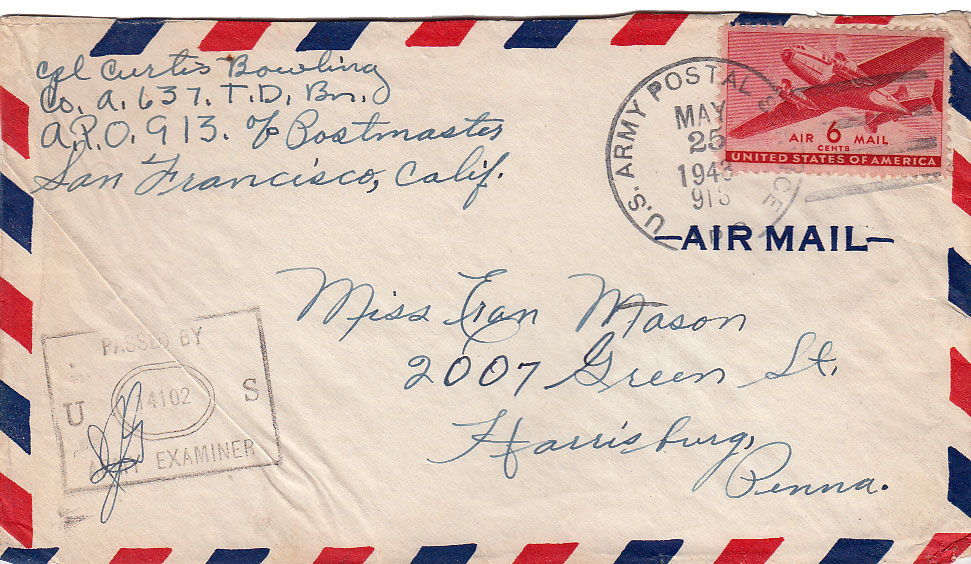 Cpl Curtis Bowling
Co. A. 637. T.D. Bn.
A.P.O. 913. % Postmaster
San Francisco, Calif.
U.S. ARMY POSTAL
MAY
25
1943
913
AIR 6 MAIL
CENTS
UNITED STATES OF AMERICA
AIR MAIL
Miss Fran Mason
2007 Green St.
Harrisburg,
Penna.
PASSED BY
U 14102 S
ARMY EXAMINER